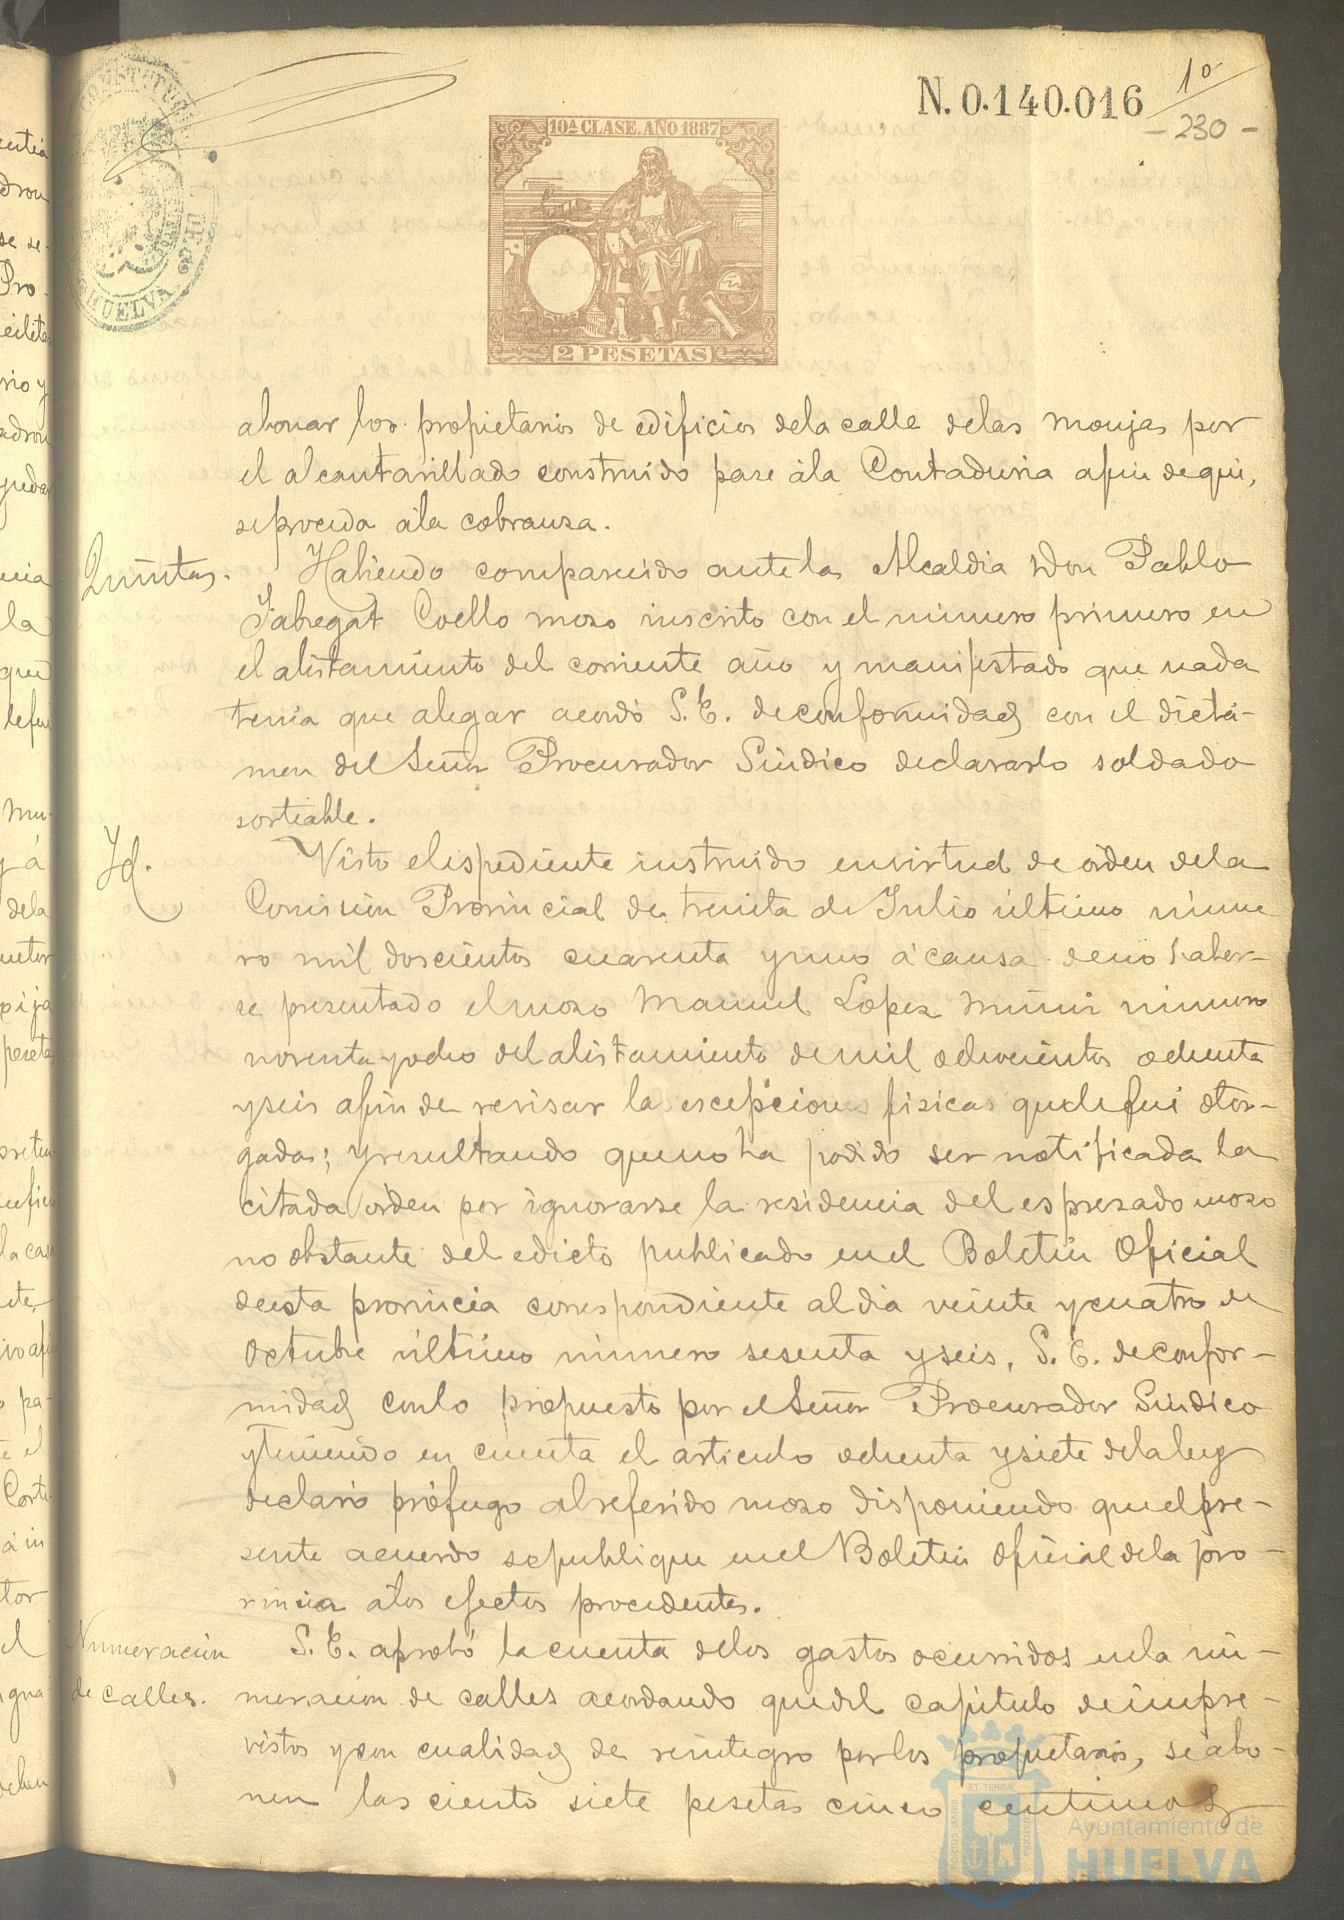 N. 0.140.016
1º
- 230 -
CONSTITUC
HUELVA
10ª CLASE. AÑO 1887
2 PESETAS
abonar los propietarios de edificios dela calle delas Monjas por
el alcantarillado construido pase ála Contaduria afin de qui,
seproceda ála cobranza.
Quintas. Habiendo comparecido ante la Alcaldia Don Pablo
Fabregat Coello mozo inscrito con el numero primero en
el alistamiento del corriente año y manifestado que nada
tenia que alegar acordó S. E. deconformidad con el dictá-
men del Señor Procurador Sindico declararlo soldado
sorteable.
Id. Visto elespediente instruido envirtud de orden dela
Comision Provincial de treinta de Julio último núme
ro mil doscientos cuarenta yuno ácausa deno haber-
se presentado elmozo Manuel Lopez Muñiz numero
noventa yocho del alistamiento demil ochocientos ochenta
yseis afin de revisar las escepciones fisicas quelefue otor-
gadas; yresultando quenoha podido ser notificada la
citada orden por ignorarse la residencia del espresado mozo
no obstante del edicto publicado enel Boletin Oficial
deesta provincia correspondiente aldia veinte ycuatro de
Octubre último número sesenta yseis, S. E. deconfor-
midad conlo propuesto por el Señor Procurador Sindico
yteniendo en cuenta el articulo ochenta ysiete delaley
declaró prófugo alreferido mozo disponiendo queelpre-
sente acuerdo sepublique enel Boletin Oficial dela pro-
vincia álos efectos procedentes.
Numeracion S. E. aprobó lacuenta delos gastos ocurridos enla nu-
de calles. meracion de calles acordando quedel capitulo deimpre-
vistos ycon cualidad de reintegro porlos propietarios, seabo-
nen las ciento siete pesetas cinco centimos
Ayuntamiento de
HUELVA